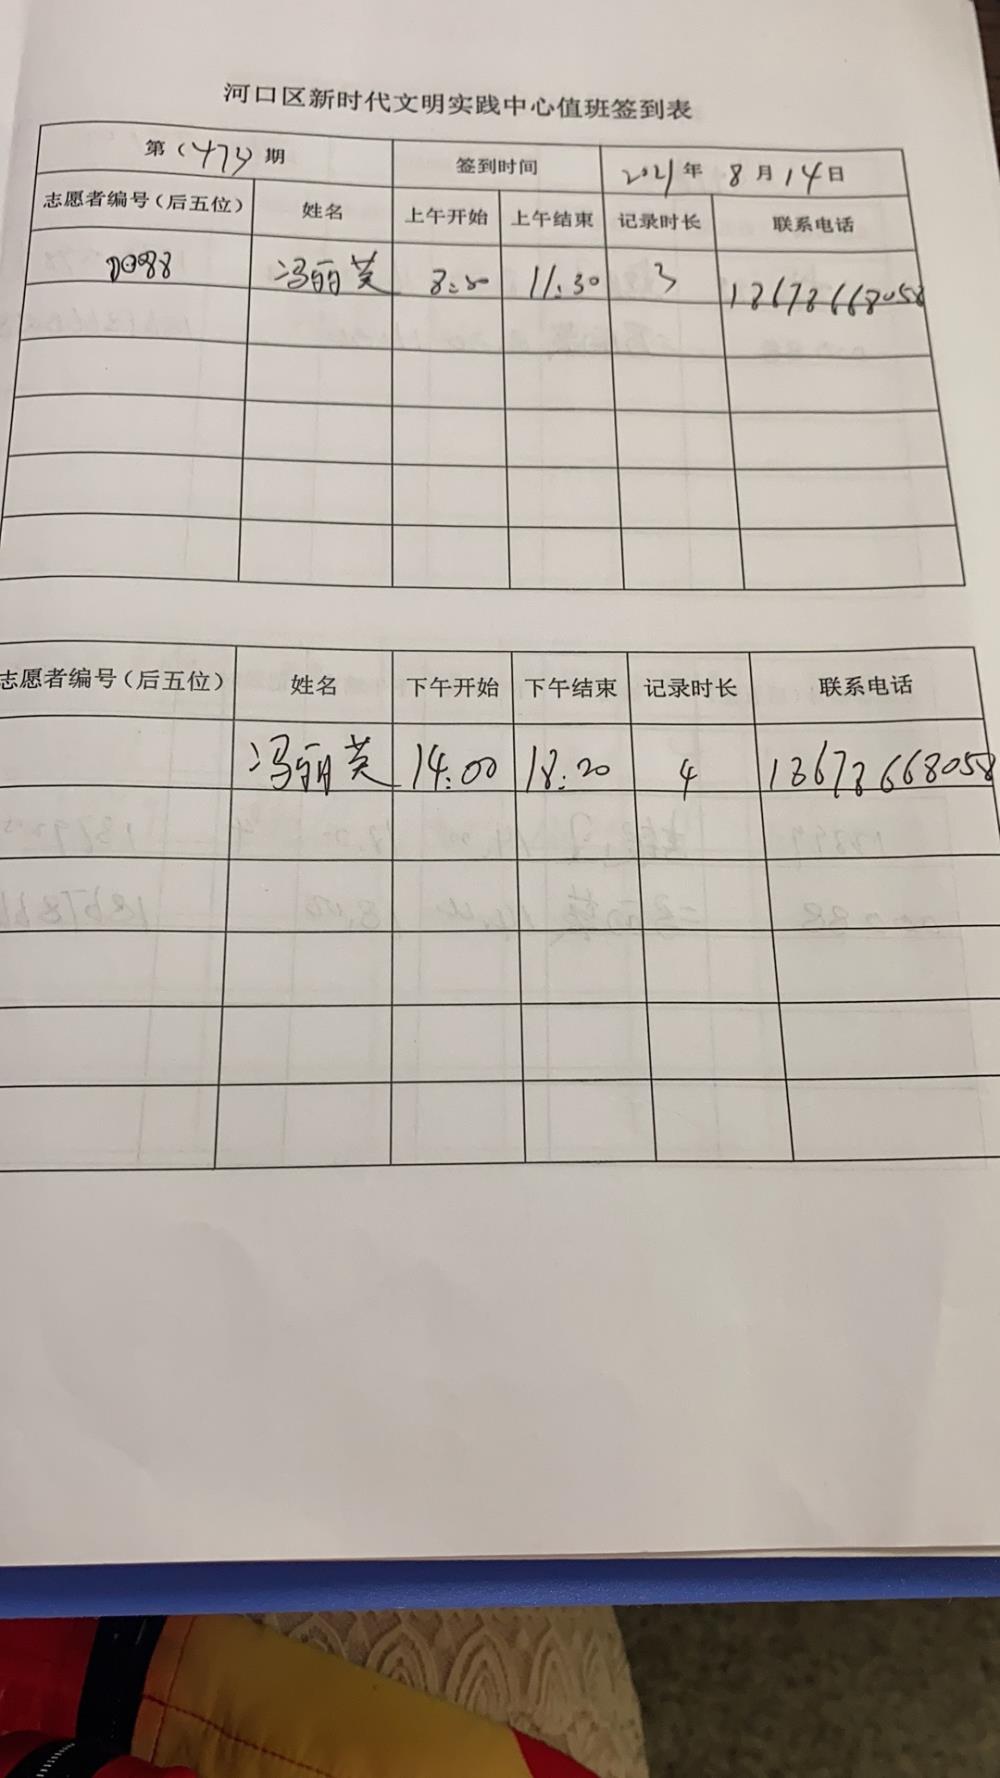 河口区新时代文明实践中心值班签到表
第（473）期 签到时间 2021年 8月14日
志愿者编号（后五位） 姓名 上午开始 上午结束 记录时长 联系电话
冯丽英 11:30 3 13678668058
志愿者编号（后五位） 姓名 下午开始 下午结束 记录时长 联系电话
冯丽英 14:00 18:20 4 13678668058